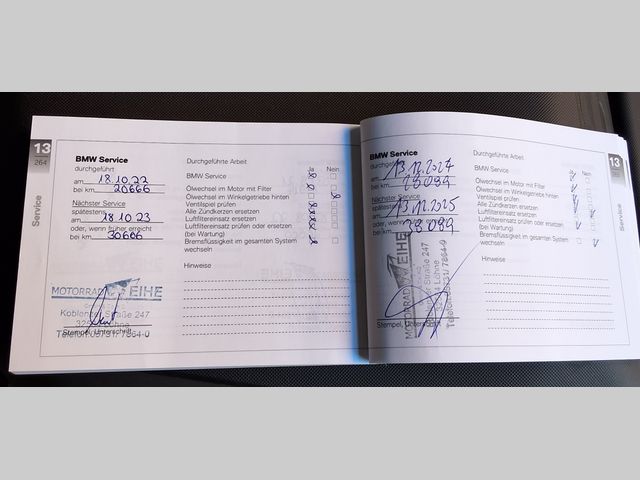 13
264
Service
BMW Service
durchgeführt
am 18.10.22
bei km 20666
Nächster Service
spätestens
am 18.10.23
oder, wenn früher erreicht
bei km 30666
MOTORRAD WEIHE
Koblenzer Straße 247
Stempel, Unterschrift
Durchgeführte Arbeit
Ja Nein
BMW Service
Ölwechsel im Motor mit Filter
Ölwechsel im Winkelgetriebe hinten
Ventilspiel prüfen
Alle Zündkerzen ersetzen
Luftfiltereinsatz ersetzen
Luftfiltereinsatz prüfen oder ersetzen
(bei Wartung)
Bremsflüssigkeit im gesamten System
wechseln
Hinweise
BMW Service
durchgeführt
am 13.12.2024
bei km 28089
Nächster Service
spätestens
am 13.12.2025
oder, wenn früher erreicht
bei km 38089
Stempel, Unterschrift
Durchgeführte Arbeit
Ja Nein
BMW Service
Ölwechsel im Motor mit Filter
Ölwechsel im Winkelgetriebe hinten
Ventilspiel prüfen
Alle Zündkerzen ersetzen
Luftfiltereinsatz ersetzen
Luftfiltereinsatz prüfen oder ersetzen
(bei Wartung)
Bremsflüssigkeit im gesamten System
wechseln
Hinweise
13
Service